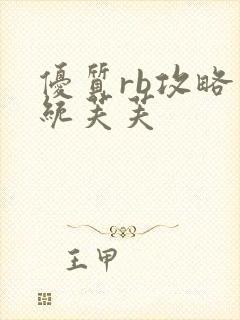 優質rb攻略
統芙芙
王甲